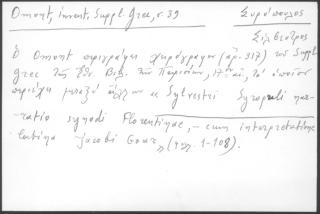 Omont, invent. Suppl. Grec, σ. 39 Συρόπουλος
Σίλβεστρος
Ὁ Omont περιγράφει χειρόγραφον (ἀρ. 317) τοῦ Suppl.
grec τῆς Ἐθν. Βιβ. τῶν Παρισίων, 17ου αἰ., τὸ ὁποῖον
περιέχει μεταξὺ ἄλλων " Sylvestri Syropuli nar-
ratio synodi Florentinae, - cum interpretatione
latina Jacobi Goar" (σσ. 1-108).